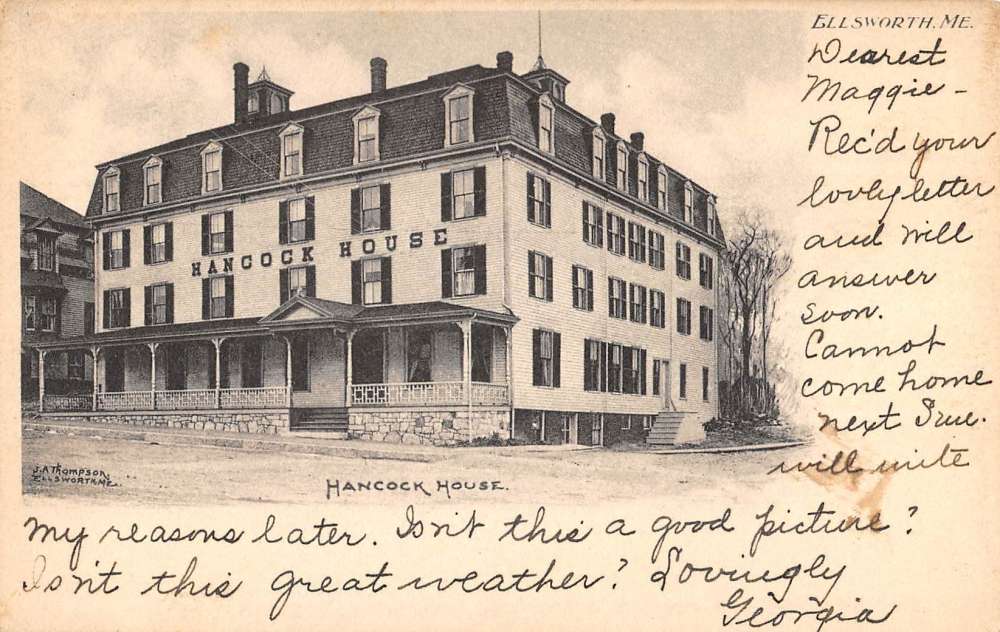 ELLSWORTH, ME.
Dearest
Maggie -
Rec'd your
lovely letter
and will
answer
soon.
Cannot
come home
next Sun.
will write
HANCOCK HOUSE
J.A. THOMPSON,
ELLSWORTH ME.
HANCOCK HOUSE.
my reasons later. Isn't this a good picture?
Isn't this great weather? Lovingly
Georgia